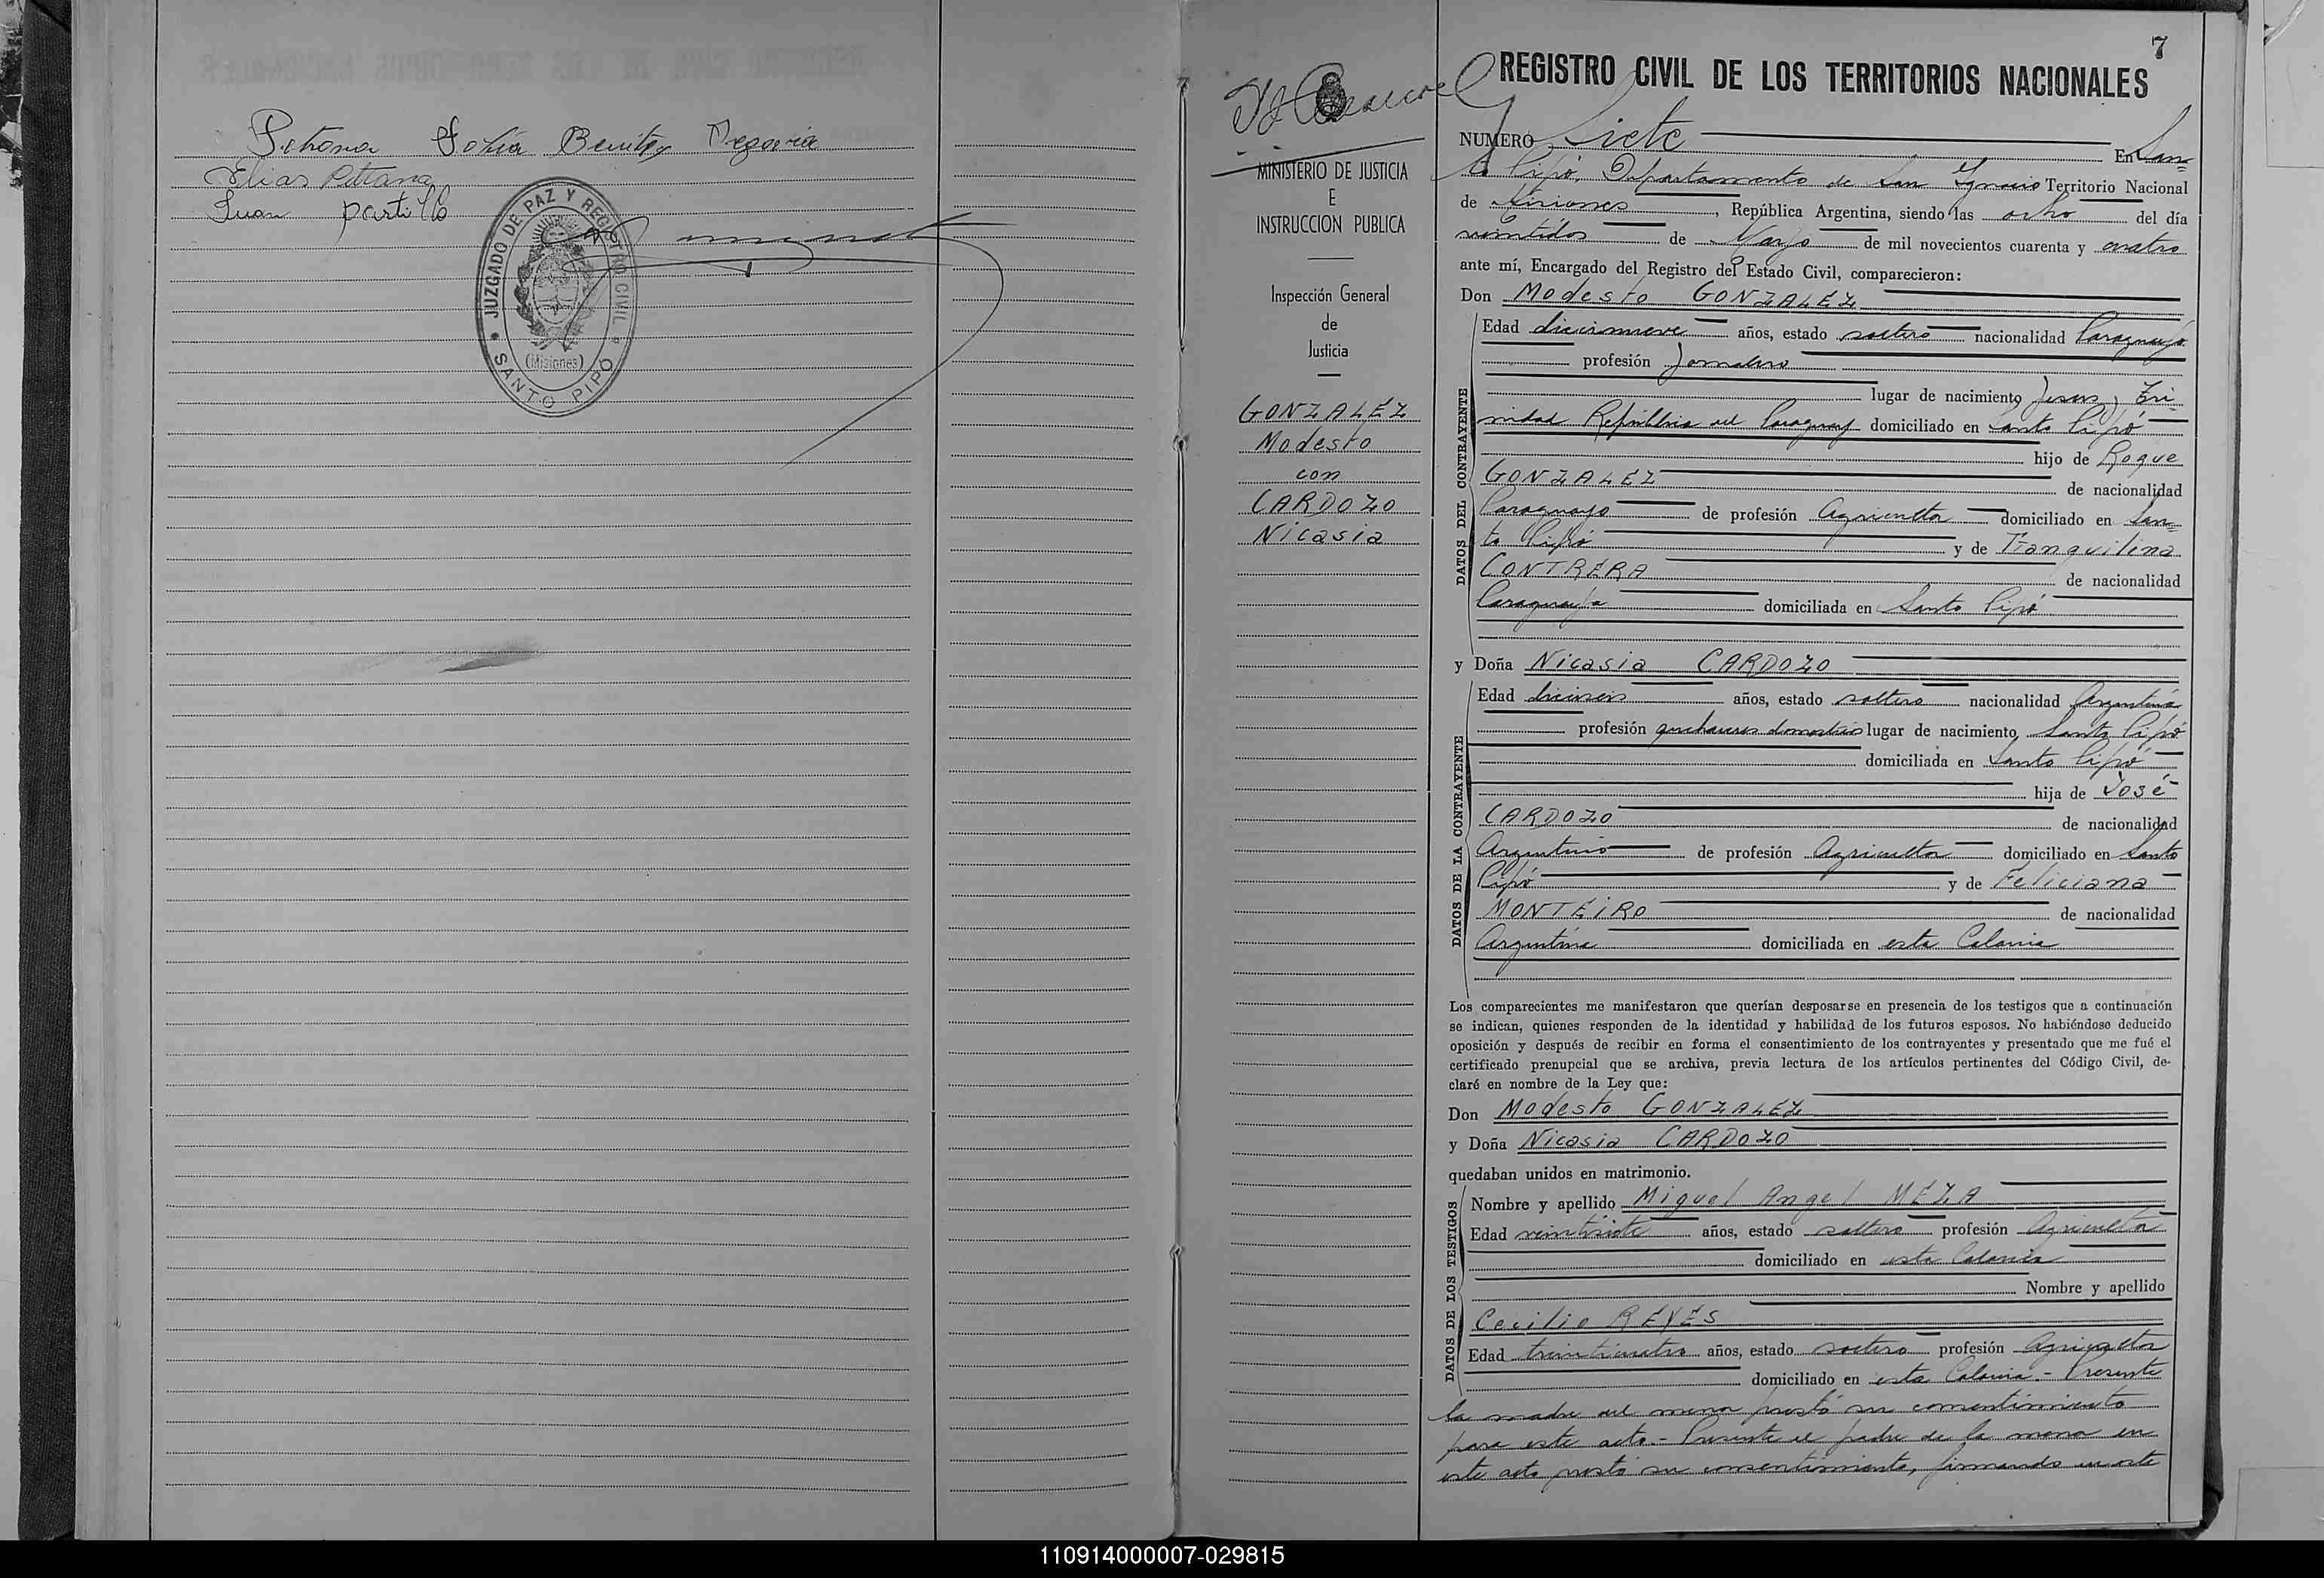 Sofía Benítez
Elias
Juan
JUZGADO DE PAZ Y REGISTRO CIVIL
(Misiones)
SANTO PIPÓ
7
REGISTRO CIVIL DE LOS TERRITORIOS NACIONALES
MINISTERIO DE JUSTICIA
E
INSTRUCCION PUBLICA
Inspección General
de
Justicia
GONZALEZ
Modesto
con
CARDOZO
Nicasia
NUMERO Siete En San=
to Pipó, Departamento de San Ignacio Territorio Nacional
de Misiones, República Argentina, siendo las ocho del día
veintidos de Marzo de mil novecientos cuarenta y cuatro
ante mí, Encargado del Registro del Estado Civil, comparecieron:
Don Modesto GONZALEZ
DATOS DEL CONTRAYENTE
Edad diecinueve años, estado soltero nacionalidad Paraguayo
profesión Jornalero
lugar de nacimiento Jesus, Tri-
nidad República del Paraguay domiciliado en Santo Pipó
hijo de Roque
GONZALEZ de nacionalidad
Paraguayo de profesión Agricultor domiciliado en San=
to Pipó y de Tranquilina
CONTRERA de nacionalidad
Paraguaya domiciliada en Santo Pipó
y Doña Nicasia CARDOZO
DATOS DE LA CONTRAYENTE
Edad dieciseis años, estado soltera nacionalidad Argentina
profesión quehaceres domesticos lugar de nacimiento Santo Pipó
domiciliada en Santo Pipó
hija de José
CARDOZO de nacionalidad
Argentino de profesión Agricultor domiciliado en Santo
Pipó y de Feliciana
MONTEIRO de nacionalidad
Argentina domiciliada en esta Colonia
Los comparecientes me manifestaron que querían desposarse en presencia de los testigos que a continuación
se indican, quienes responden de la identidad y habilidad de los futuros esposos. No habiéndose deducido
oposición y después de recibir en forma el consentimiento de los contrayentes y presentado que me fué el
certificado prenupcial que se archiva, previa lectura de los artículos pertinentes del Código Civil, de-
claré en nombre de la Ley que:
Don Modesto GONZALEZ
y Doña Nicasia CARDOZO
quedaban unidos en matrimonio.
DATOS DE LOS TESTIGOS
Nombre y apellido Miguel Angel MEZA
Edad veintisiete años, estado soltero profesión Agricultor
domiciliado en esta Colonia
Nombre y apellido
Cecilio REYES
Edad treinticuatro años, estado soltero profesión Agricultor
domiciliado en esta Colonia.- Presente
la madre del menor prestó su consentimiento
para este acto.- Presente el padre de la menor en
este acto prestó su consentimiento, firmando en este
110914000007-029815